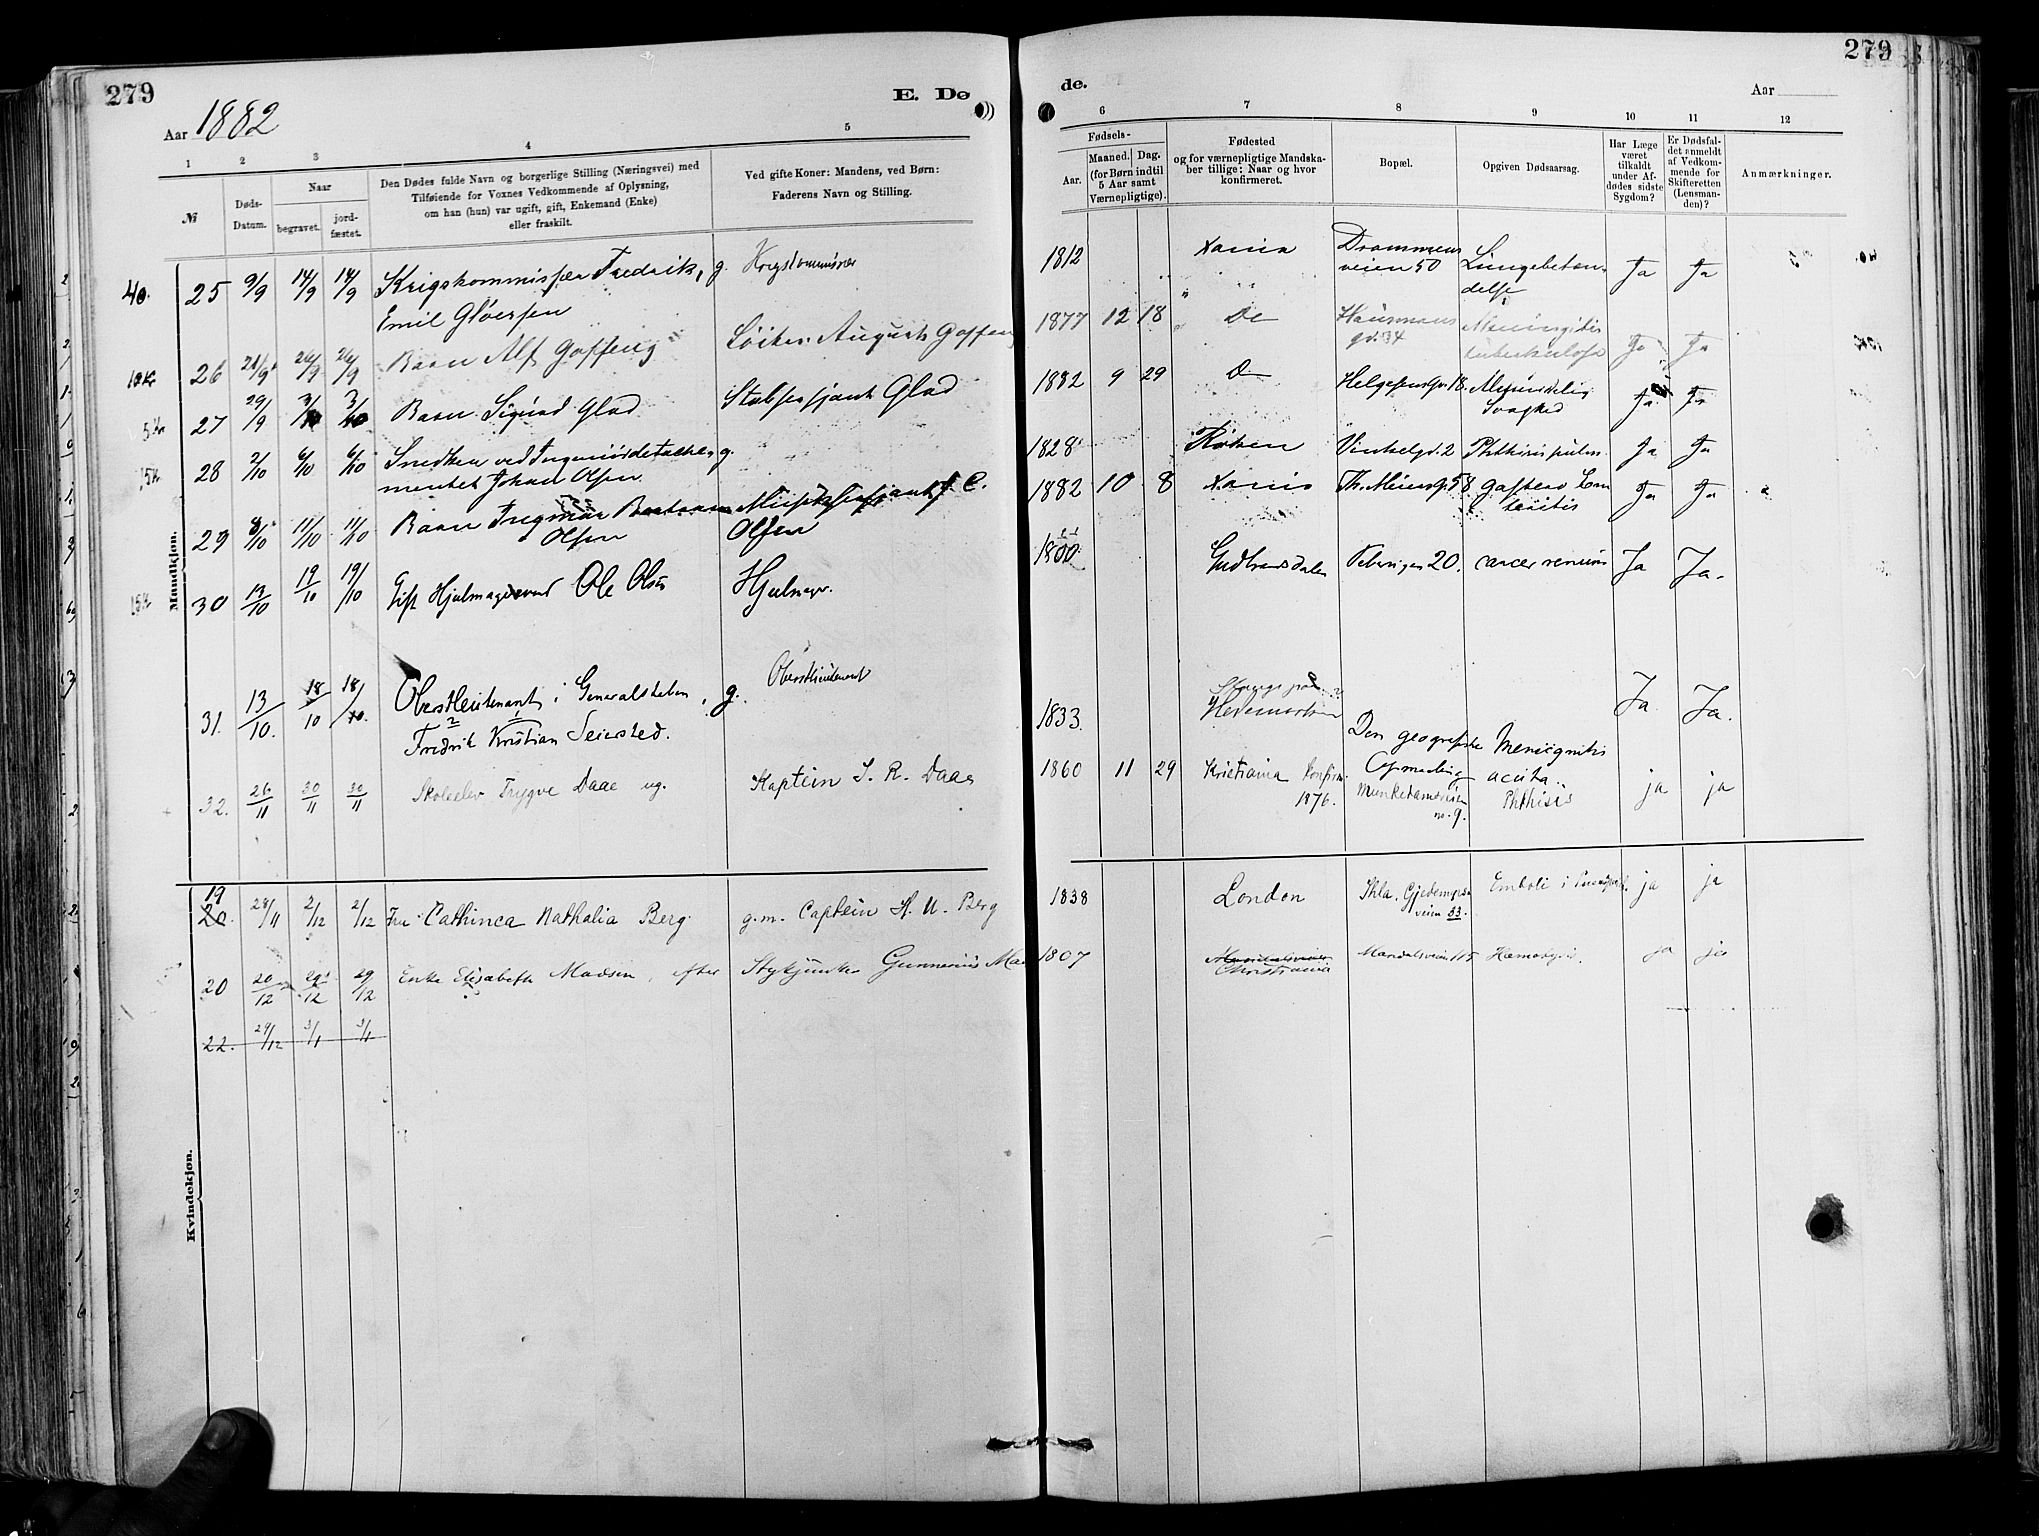 279
279
E. Dø
de.
Aar 1882
Aar
1 2 3 4 5
6 7 8 9 10 11 12
№
Døds-Datum.
Naar
begravet.
jord-fæstet.
Den Dødes fulde Navn og borgerlige Stilling (Næringsvei) med
Tilføiende for Voxnes Vedkommende af Oplysning,
om han (hun) var ugift, gift, Enkemand (Enke)
eller fraskilt.
Ved gifte Koner: Mandens, ved Børn:
Faderens Navn og Stilling.
Fødsels-
Aar.
Maaned. Dag.
(for Børn indtil
5 Aar samt
Værnepligtige).
Fødested
og for værnepligtige Mandska-
ber tillige: Naar og hvor
konfirmeret.
Bopæl.
Opgiven Dødsaarsag.
Har Læge
været
tilkaldt
under Af-
dødes sidste
Sygdom?
Er Dødsfal-
det anmeldt
af Vedkom-
mende for
Skifteretten
(Lensman-
den)?
Anmærkninger.
Mandkjøn.
25 9/9 14/9 14/9 Krigskommissær Fredrik, g. Krigskommissær 1812 Xania Drammens Lungebetæn- Ja Ja
Emil Gløersen veien 50 delse
26 21/9 26/9 26/9 Barn Alf Gaffeng August Gaffeng 1877 12 18 Do Hausmans Meningitis Ja Ja
gd. 34 tuberkulosa
27 29/9 3/10 3/10 Barn Sigurd Glad Stabssersjant Glad 1882 9 29 D Helgesensgd. 18. Medfødelig Ja Ja
Svaghed
28 2/10 6/10 6/10 Snedker ved Ingeniørdetache, g. 1828 Røken Vinkelgd. 2 Phthisis pulm. Ja Ja
mentet Johan Olsen
29 8/10 11/10 11/10 Barn Ingmar Musiksersjant J. C. 1882 10 8 Xania Th. Meiersgd. 58 Gastero En Ja Ja
Olsen Olsen teritis
30 13/10 19/10 19/10 Gift Hjulmagersvend Ole Olsen Hjulmgr. 1800 Gudbrandsdalen 20. cancer renum Ja Ja.
31. 13/10. 18/10 18/10. Oberstleutenant i Generalstaben, g. Oberstleutenant 1833. Stange paa Ja. Ja.
Fredrik Kristian Seiersted. Hedemarken Den geografiske Meningitis
Opmaaling acuta.
32. 26/11 30/11 30/11 Skoleelev Trygve Daae ug. Kaptein I. R. Daae 1860 11 29 Kristiania Konfirm. Munkedamsveien Phthisis ja ja
1876. no. 9.
Kvindekjøn.
19
20 28/11 2/12 2/12 Fru Cathinca Nathalia Berg g.m. Captein H. U. Berg 1838 London Skla. Gjedemyrs Emboli i ja ja
veien 33.
20 20/12 29/12 29/12 Enke Elisabeth Madsen, efter Stykjunker Gunnerius Ma 1807 Christiania Mandalsveien 115 Hæmatysis. ja ja
22. 29/12 3/1 3/1